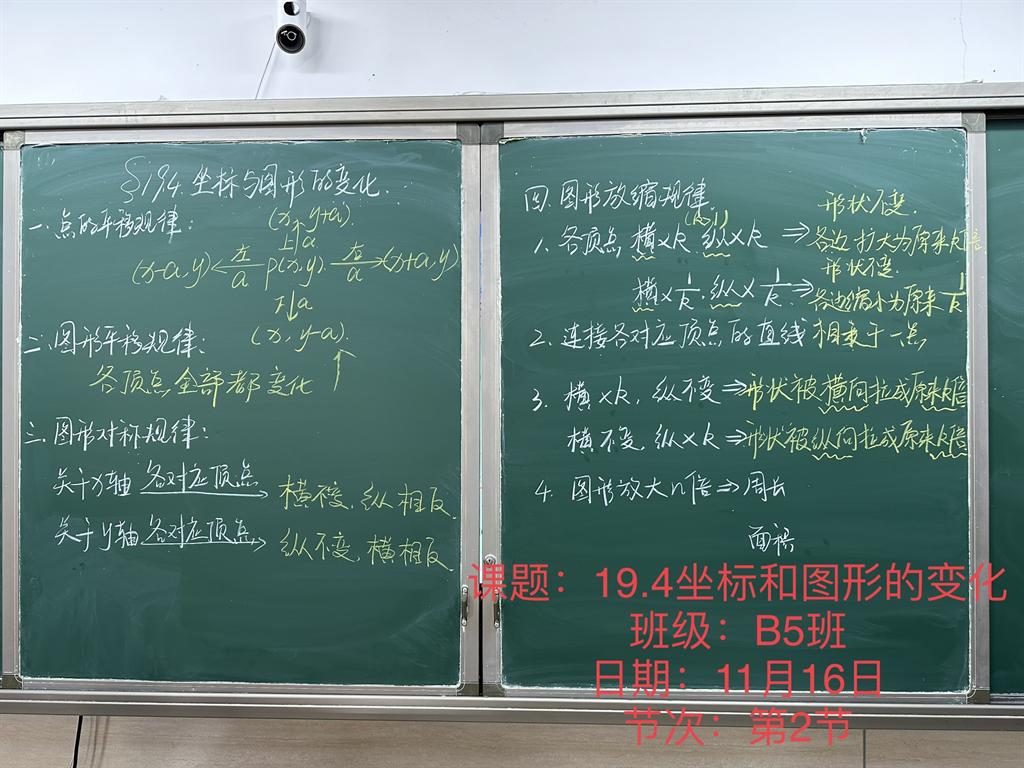 §19.4 坐标与图形的变化
一. 点的平移规律:
(x, y+a)
上 a
(x-a, y) 左 a P(x, y) 右 a (x+a, y)
下 a
(x, y-a)
二. 图形平移规律:
各顶点全部都变化
三. 图形对称规律:
关于x轴 各对应顶点 横不变, 纵相反
关于y轴 各对应顶点 纵不变, 横相反
四. 图形放缩规律
(k>1) 形状不变.
1. 各顶点 横×k, 纵×k ⇒ 各边扩大为原来k倍
形状不变.
横×1/k, 纵×1/k ⇒ 各边缩小为原来1/k
2. 连接各对应顶点的直线相交于一点
3. 横×k, 纵不变 ⇒ 形状被横向拉成原来k倍
横不变, 纵×k ⇒ 形状被纵向拉成原来k倍
4. 图形放大n倍 ⇒ 周长
面积
课题：19.4坐标和图形的变化
班级：B5班
日期：11月16日
节次：第2节